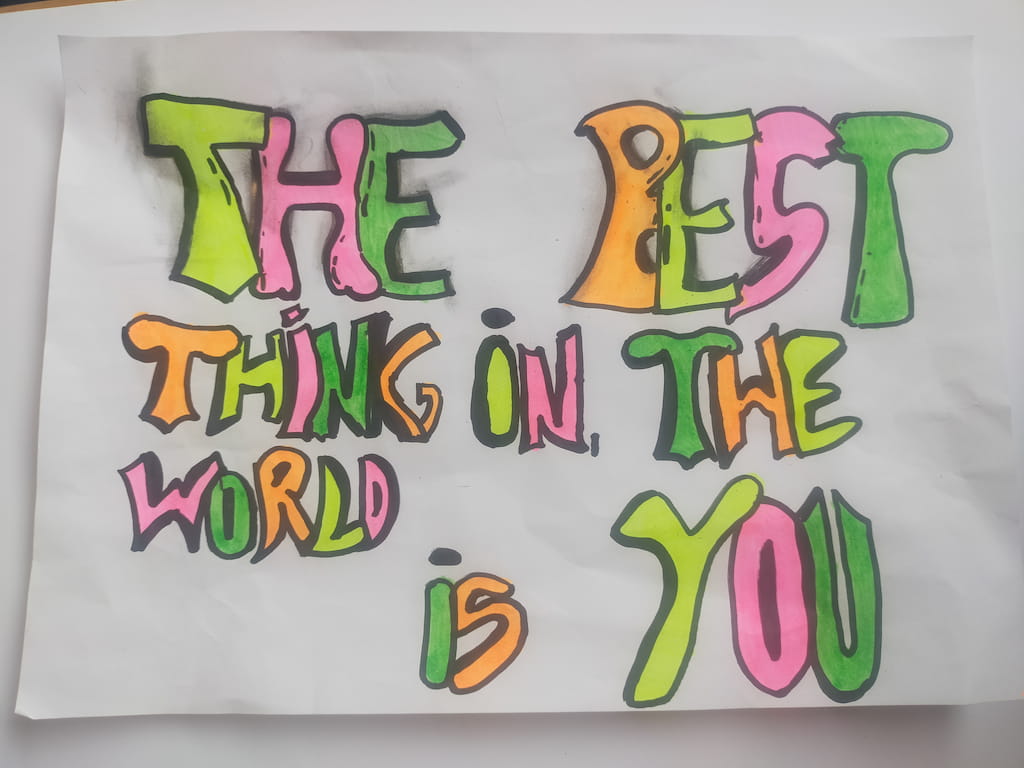 THE BEST
THiNG iN THE
WORLD
iS YOU